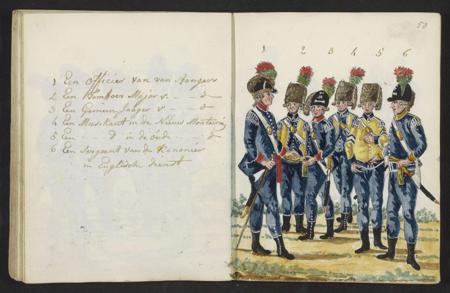 1 Een Officier van van Aangers
2 Een Tamboer Major v. — d
3 Een Gemeen Jaager v — d
4 Een Musikant in de Nieuw Monteering
5 Een — D in de oude — d
6 Een Sergeant van de Kanonier
in Englische dienst
50
1 2 3 4 5 6